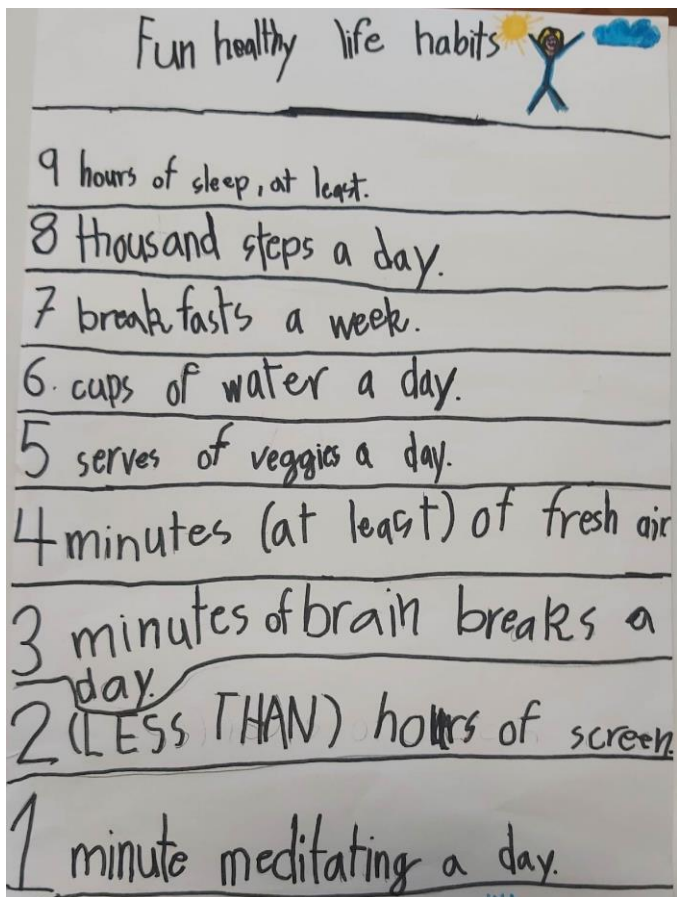 Fun healthy life habits
9 hours of sleep, at least.
8 thousand steps a day.
7 breakfasts a week.
6. cups of water a day.
5 serves of veggies a day.
4 minutes (at least) of fresh air
3 minutes of brain breaks a
day.
2 (LESS THAN) hours of screen
1 minute meditating a day.